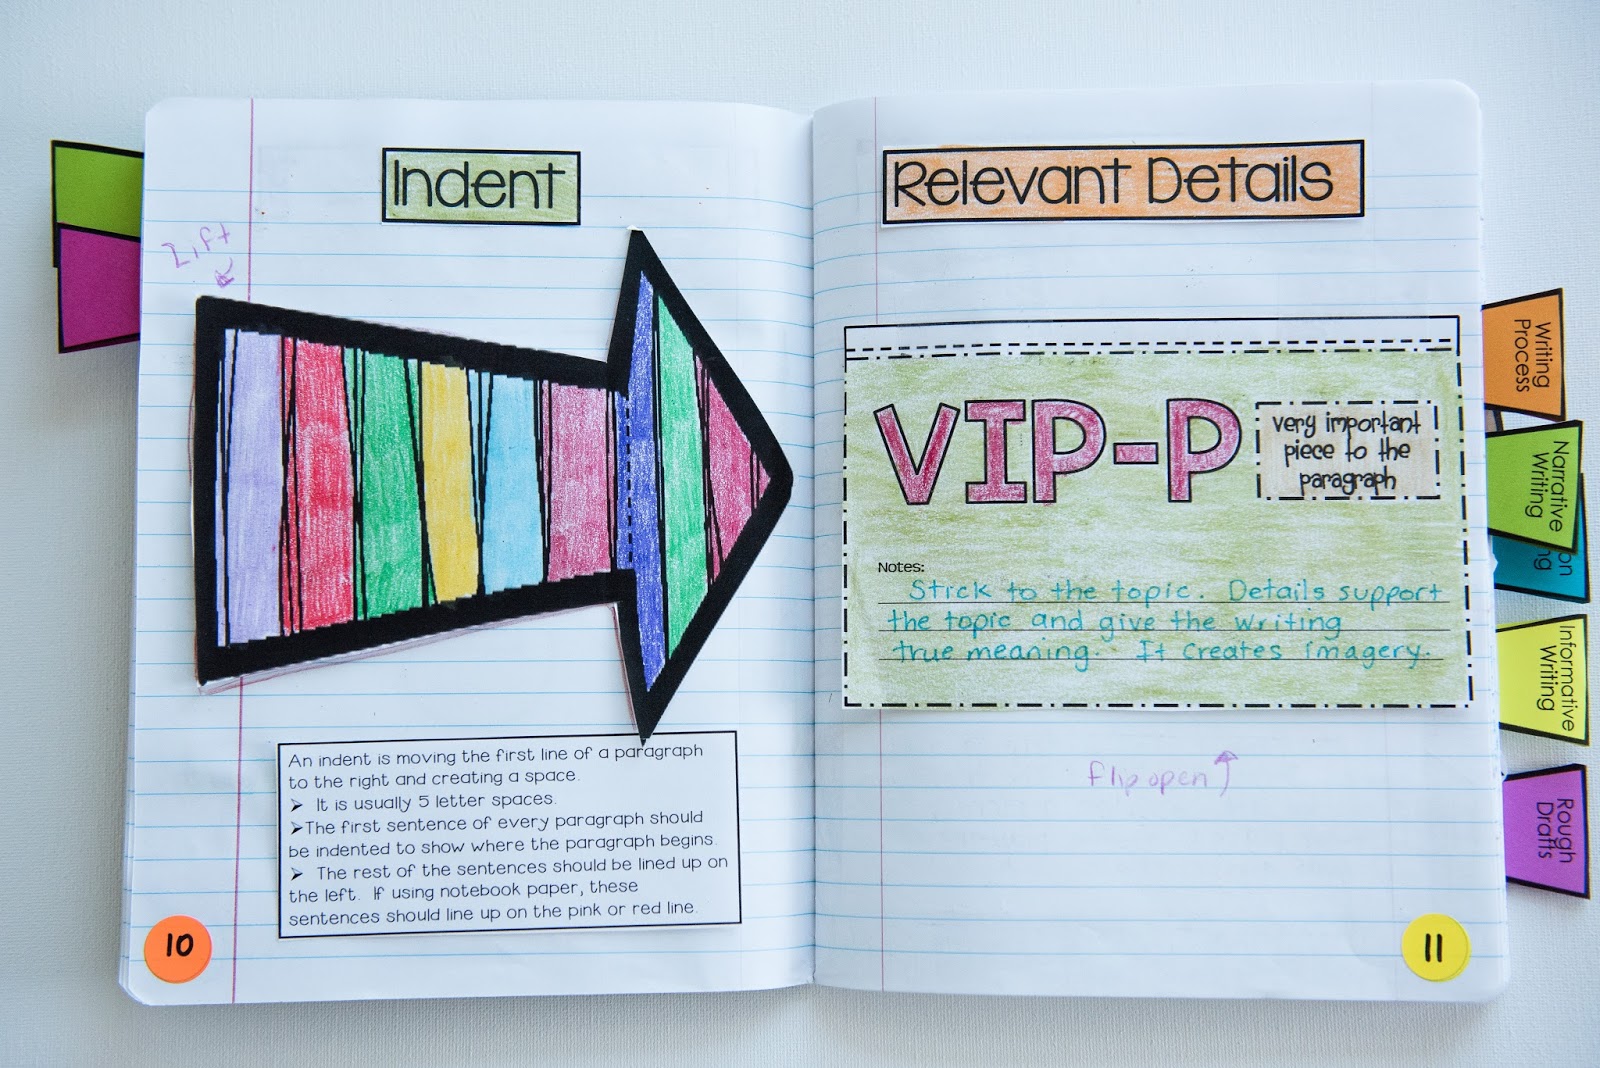 Indent
Lift
An indent is moving the first line of a paragraph
to the right and creating a space.
➢ It is usually 5 letter spaces.
➢The first sentence of every paragraph should
be indented to show where the paragraph begins.
➢ The rest of the sentences should be lined up on
the left. If using notebook paper, these
sentences should line up on the pink or red line.
10
Relevant Details
VIP-P
very important
piece to the
paragraph
Notes:
Stick to the topic. Details support
the topic and give the writing
true meaning. It creates imagery.
flip open
11
Writing
Process
Narrative
Writing
Informative
Writing
Rough
Drafts